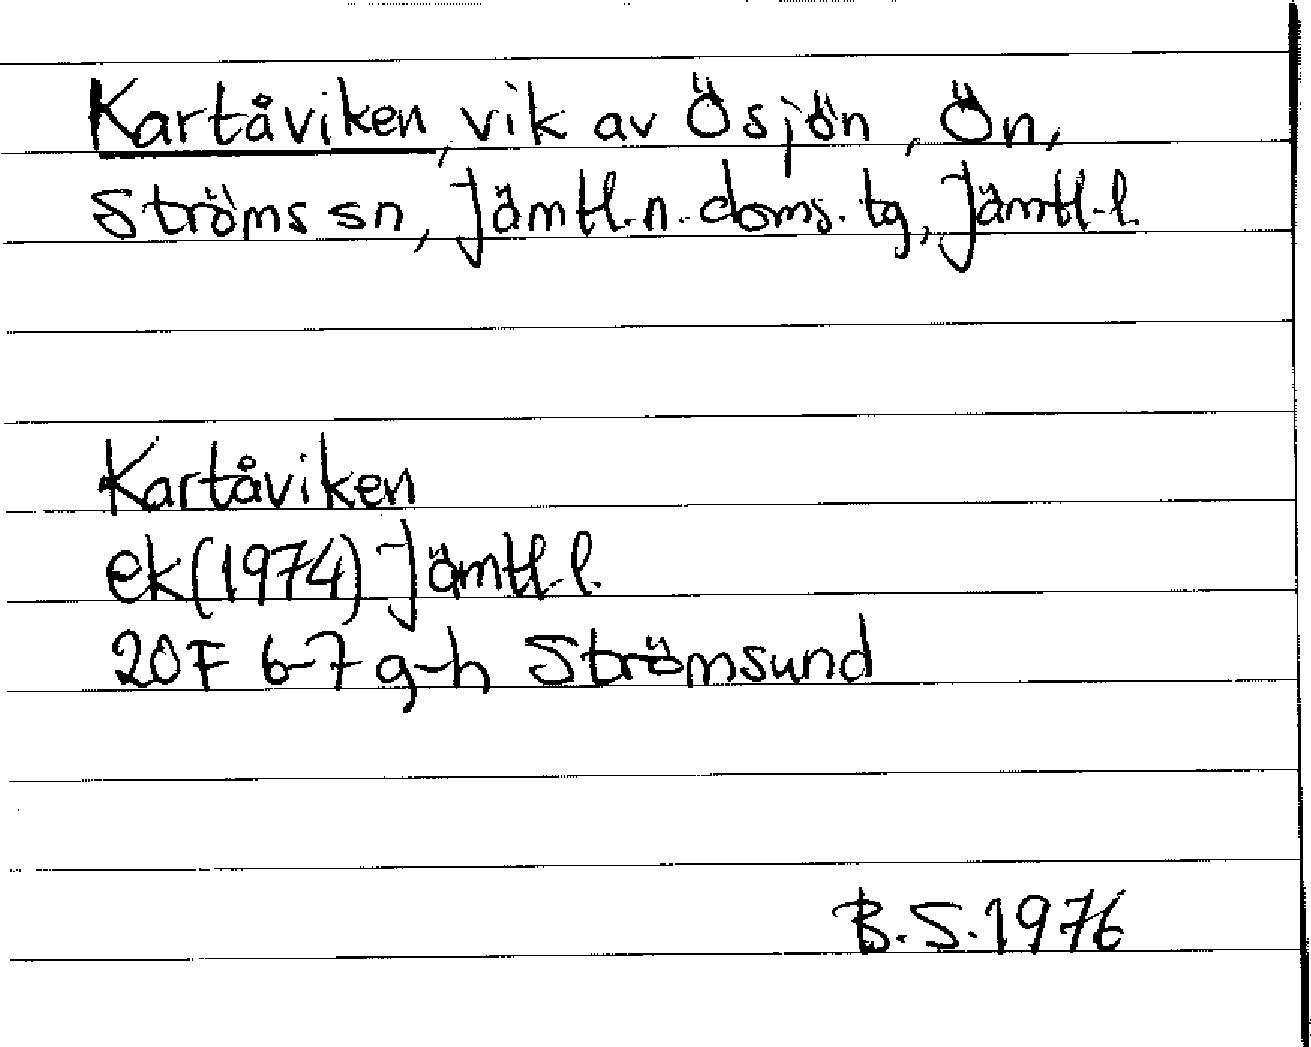 Kartåviken, vik av Ösjön, Ön,
Ströms sn, Jämtl.n. doms. tg, Jämtl.l.
Kartåviken
ek(1974) Jämtl.l.
20F 6-7 g-h Strömsund
B.S. 1976